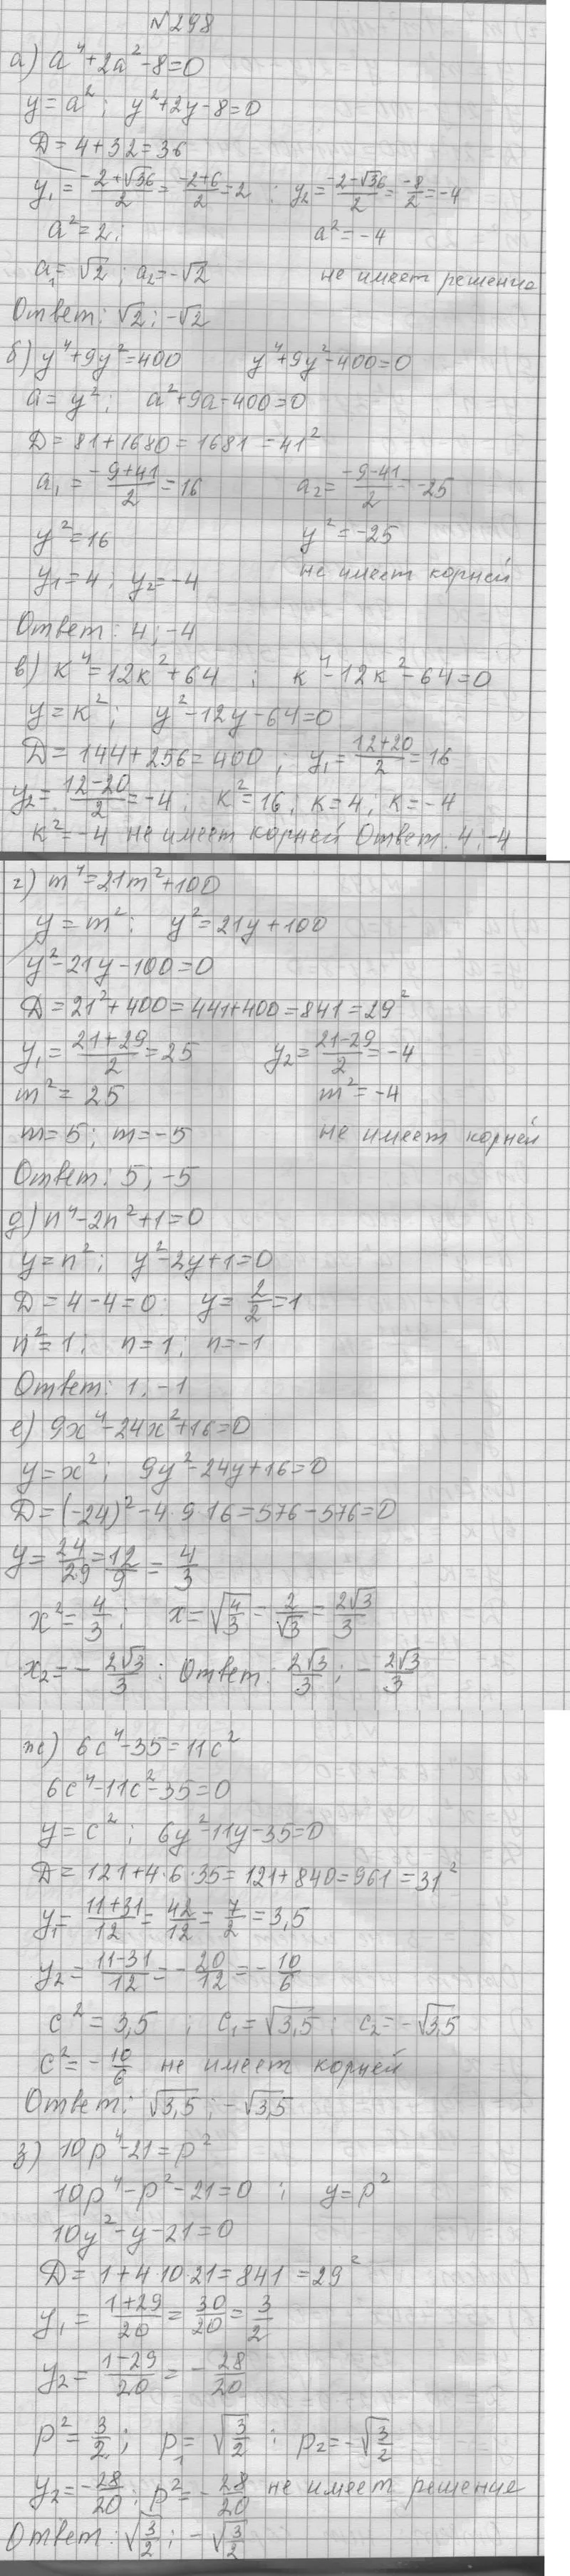 №298
а) a⁴+2a²-8=0
y=a²; y²+2y-8=0
Д=4+32=36
y₁=(-2+√36)/2=(-2+6)/2=2; y₂=(-2-√36)/2=-8/2=-4
a²=2; a²=-4
a₁=√2; a₂=-√2 не имеет решение
Ответ: √2; -√2
б) y⁴+9y²=400 y⁴+9y²-400=0
a=y²; a²+9a-400=0
Д=81+1680=1681=41²
a₁=(-9+41)/2=16 a₂=(-9-41)/2=-25
y²=16 y²=-25
y₁=4; y₂=-4 не имеет корней
Ответ: 4; -4
в) к⁴=12к²+64; к⁴-12к²-64=0
y=к²; y²-12y-64=0
Д=144+256=400; y₁=(12+20)/2=16
y₂=(12-20)/2=-4; к²=16; к=4; к=-4
к²=-4 не имеет корней Ответ: 4; -4
г) m⁴=21m²+100
y=m²; y²=21y+100
y²-21y-100=0
Д=21²+400=441+400=841=29²
y₁=(21+29)/2=25 y₂=(21-29)/2=-4
m²=25 m²=-4
m=5; m=-5 не имеет корней
Ответ: 5; -5
д) n⁴-2n²+1=0
y=n²; y²-2y+1=0
Д=4-4=0; y=2/2=1
n²=1; n=1; n=-1
Ответ: 1; -1
е) 9x⁴-24x²+16=0
y=x²; 9y²-24y+16=0
Д=(-24)²-4·9·16=576-576=0
y=24/29=12/9=4/3
x²=4/3; x=√(4/3)=2/√3=2√3/3
x₂=-2√3/3; Ответ: 2√3/3; -2√3/3
ж) 6c⁴-35=11c²
6c⁴-11c²-35=0
y=c²; 6y²-11y-35=0
Д=121+4·6·35=121+840=961=31²
y₁=(11+31)/12=42/12=7/2=3,5
y₂=(11-31)/12=-20/12=-10/6
c²=3,5; c₁=√3,5; c₂=-√3,5
c²=-10/6 не имеет корней
Ответ: √3,5; -√3,5
з) 10p⁴-21=p²
10p⁴-p²-21=0; y=p²
10y²-y-21=0
Д=1+4·10·21=841=29²
y₁=(1+29)/20=30/20=3/2
y₂=(1-29)/20=-28/20
p²=3/2; p₁=√(3/2); p₂=-√(3/2)
y₂=-28/20; p²=-28/20 не имеет решение
Ответ: √(3/2); -√(3/2)